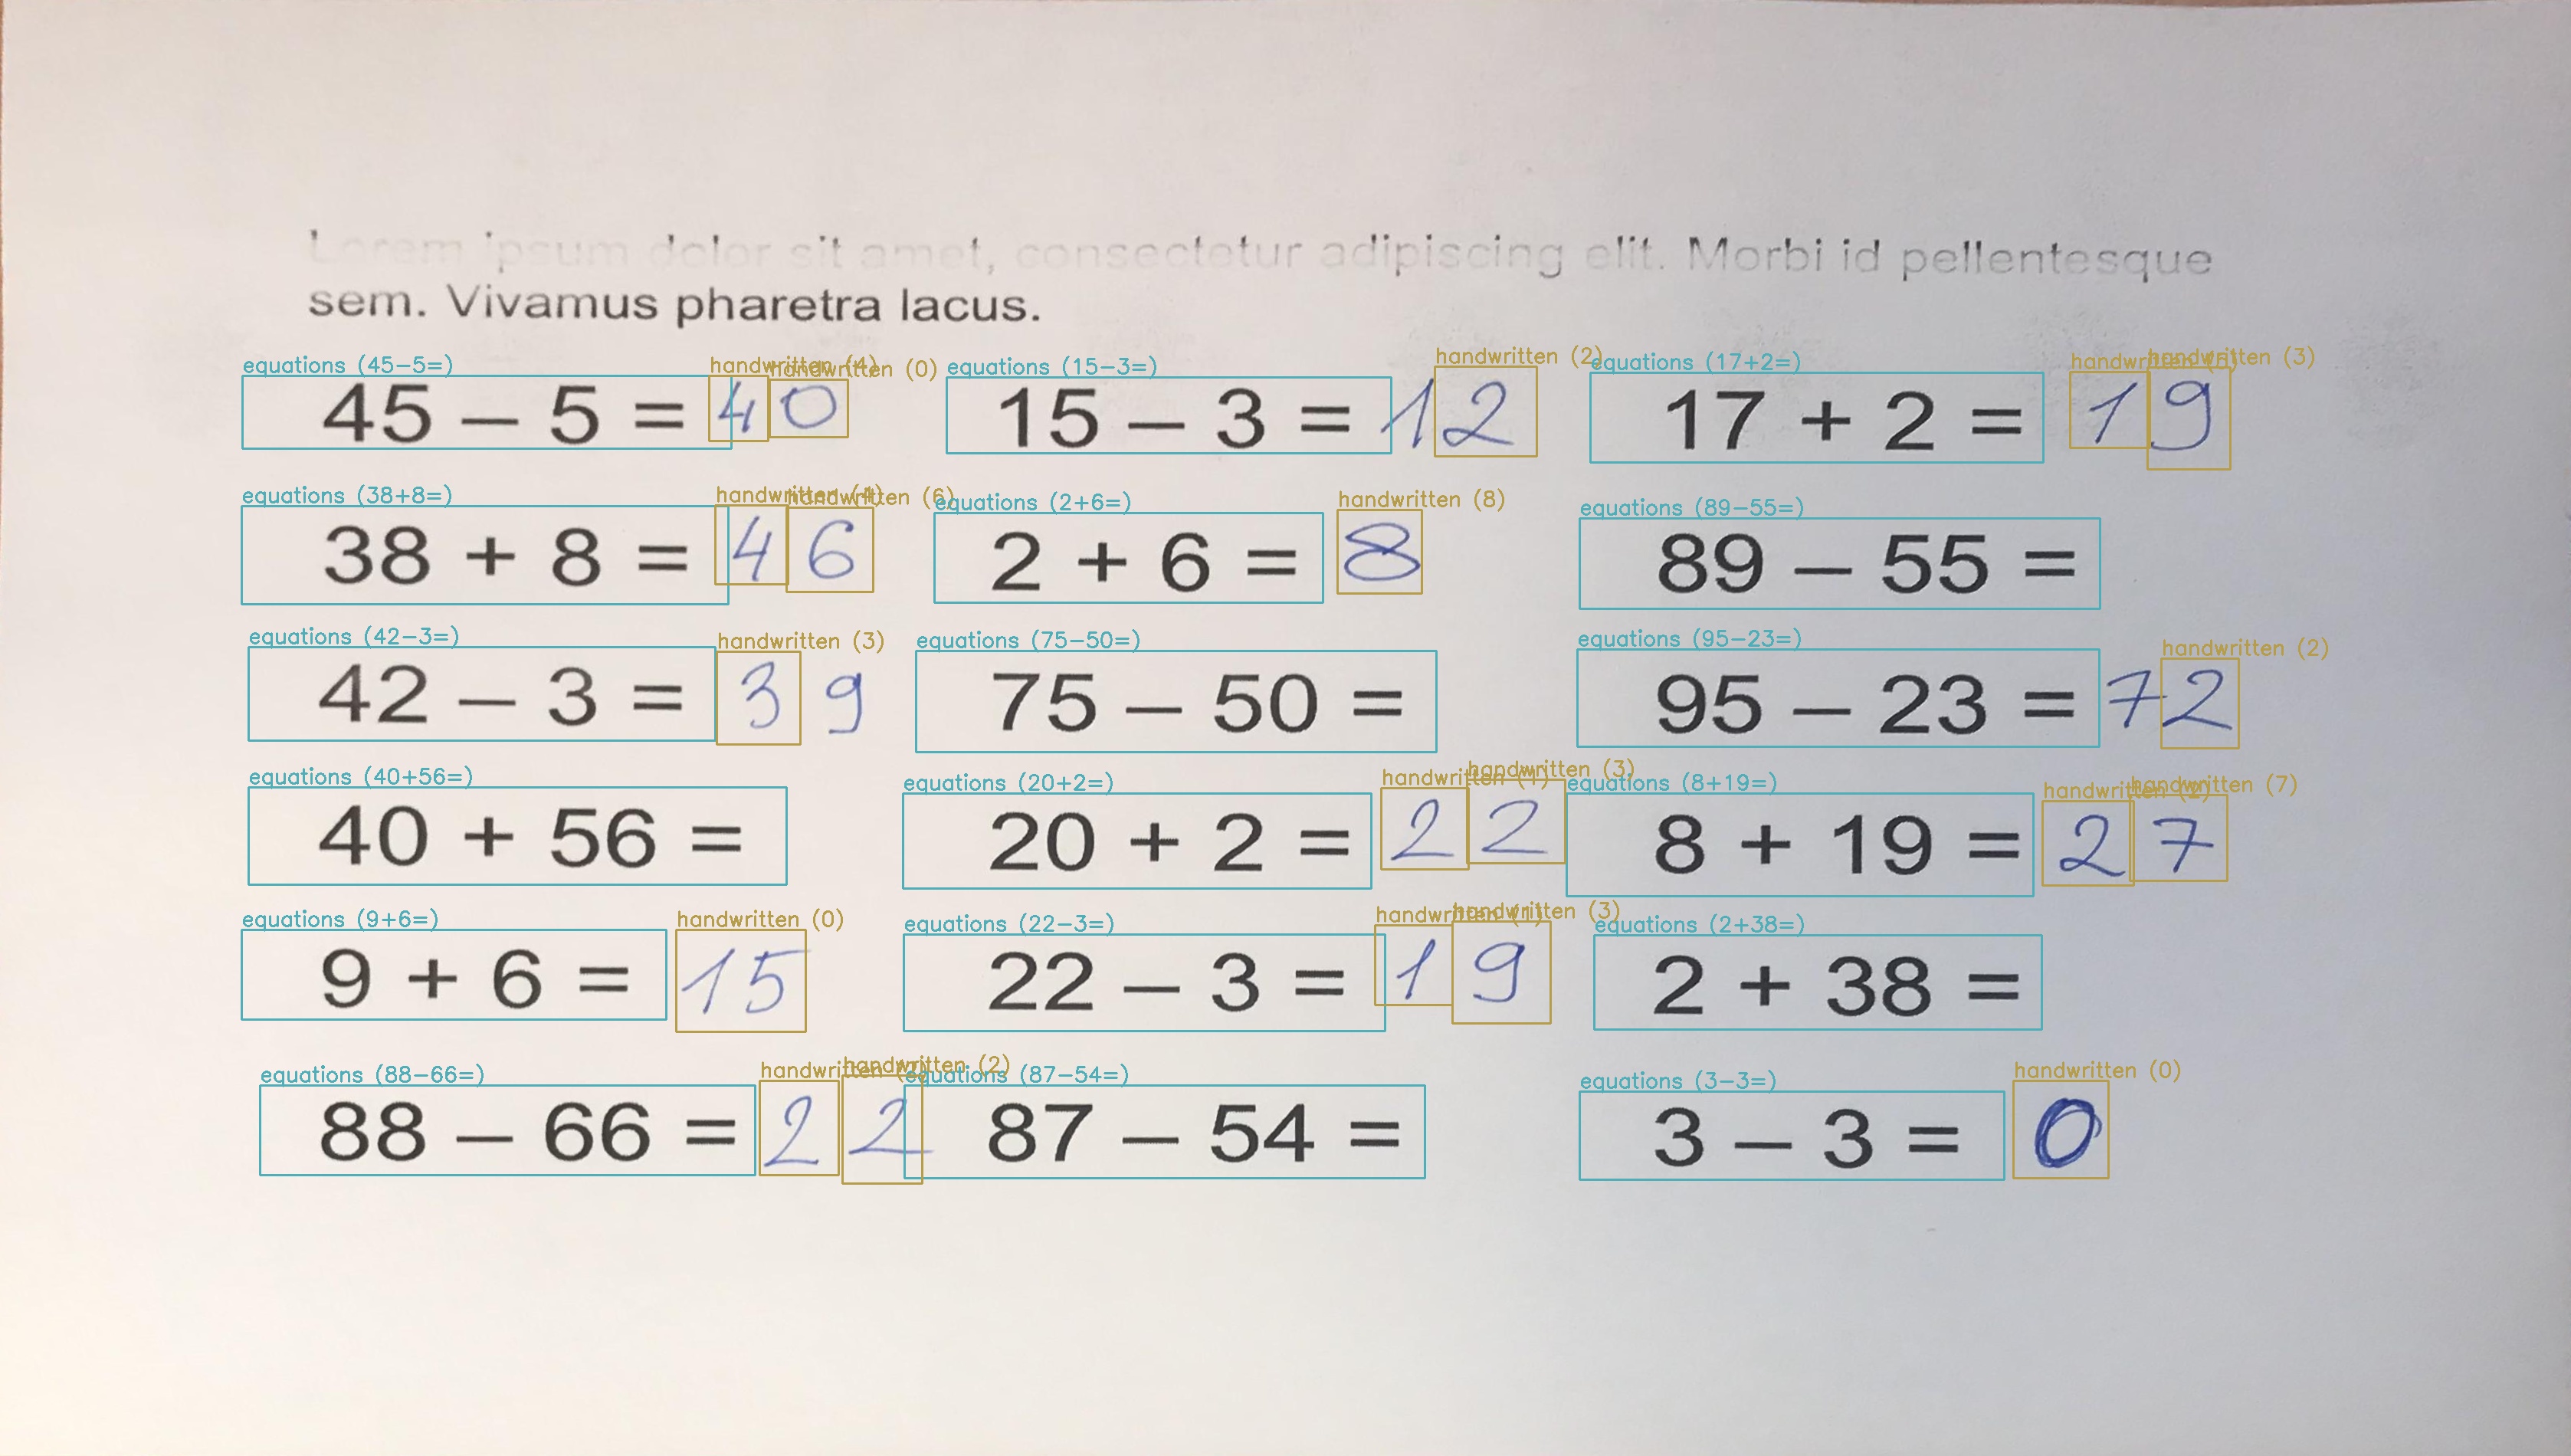 Lorem ipsum dolor sit amet, consectetur adipiscing elit. Morbi id pellentesque
sem. Vivamus pharetra lacus.
equations (45-5=) handwritten (4) handwritten (0) equations (15-3=) handwritten (2) equations (17+2=) handwritten handwritten (3)
45 – 5 = 40 15 – 3 = 12 17 + 2 = 19
equations (38+8=) handwritten (4) handwritten (6) equations (2+6=) handwritten (8) equations (89-55=)
38 + 8 = 46 2 + 6 = 8 89 – 55 =
equations (42-3=) handwritten (3) equations (75-50=) equations (95-23=) handwritten (2)
42 – 3 = 39 75 – 50 = 95 – 23 = 72
equations (40+56=) equations (20+2=) handwritten (1) handwritten (3) equations (8+19=) handwritten (2) handwritten (7)
40 + 56 = 20 + 2 = 22 8 + 19 = 27
equations (9+6=) handwritten (0) equations (22-3=) handwritten (1) handwritten (3) equations (2+38=)
9 + 6 = 15 22 – 3 = 19 2 + 38 =
equations (88-66=) handwritten handwritten (2) equations (87-54=) equations (3-3=) handwritten (0)
88 – 66 = 22 87 – 54 = 3 – 3 = 0